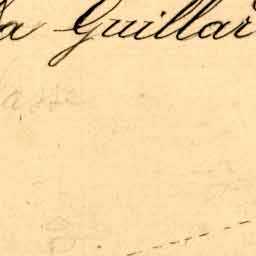 a Guillar